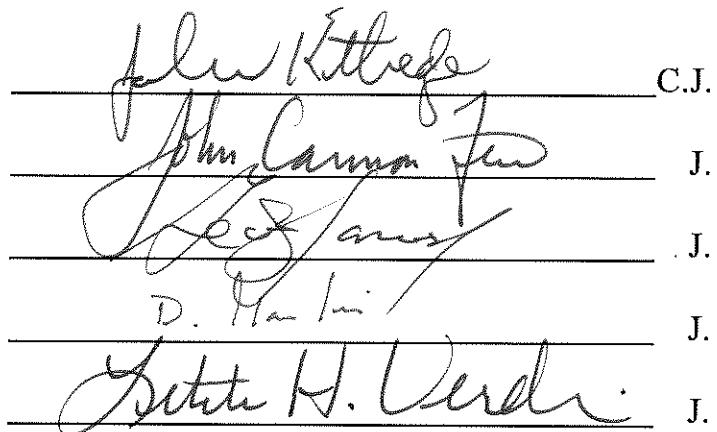 John Kittredge C.J.
John Cannon Few J.
J.
D. Martin J.
Letitia H. Verdin J.